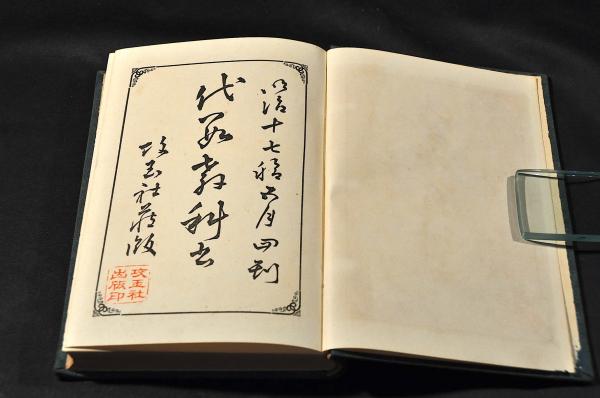 明治十七稔六月四刻
代数教科書
攻玉社蔵版
攻玉社
出版印